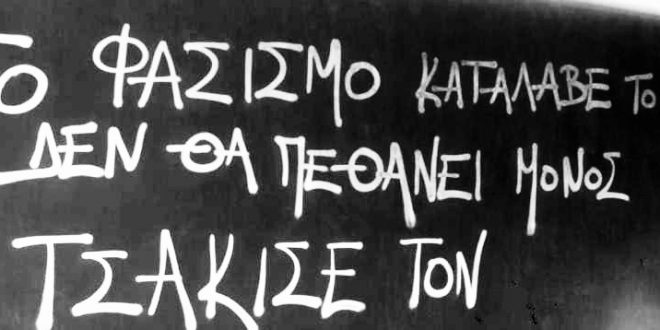 ΤΟ ΦΑΣΙΣΜΟ ΚΑΤΑΛΑΒΕ ΤΟ
ΔΕΝ ΘΑ ΠΕΘΑΝΕΙ ΜΟΝΟΣ
ΤΣΑΚΙΣΕ ΤΟΝ